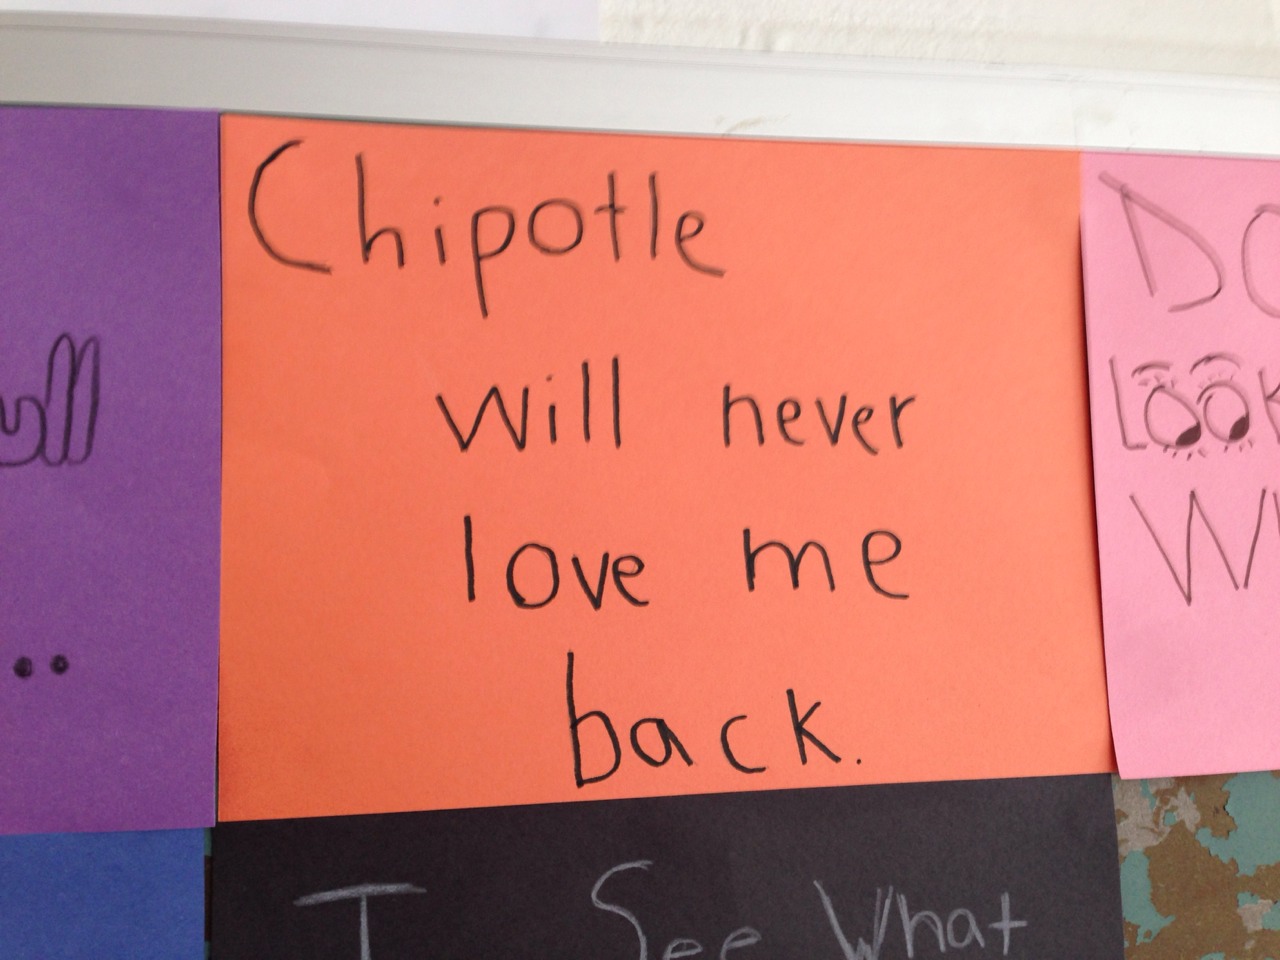 Chipotle
will never
love me
back.
I See What
LOOK